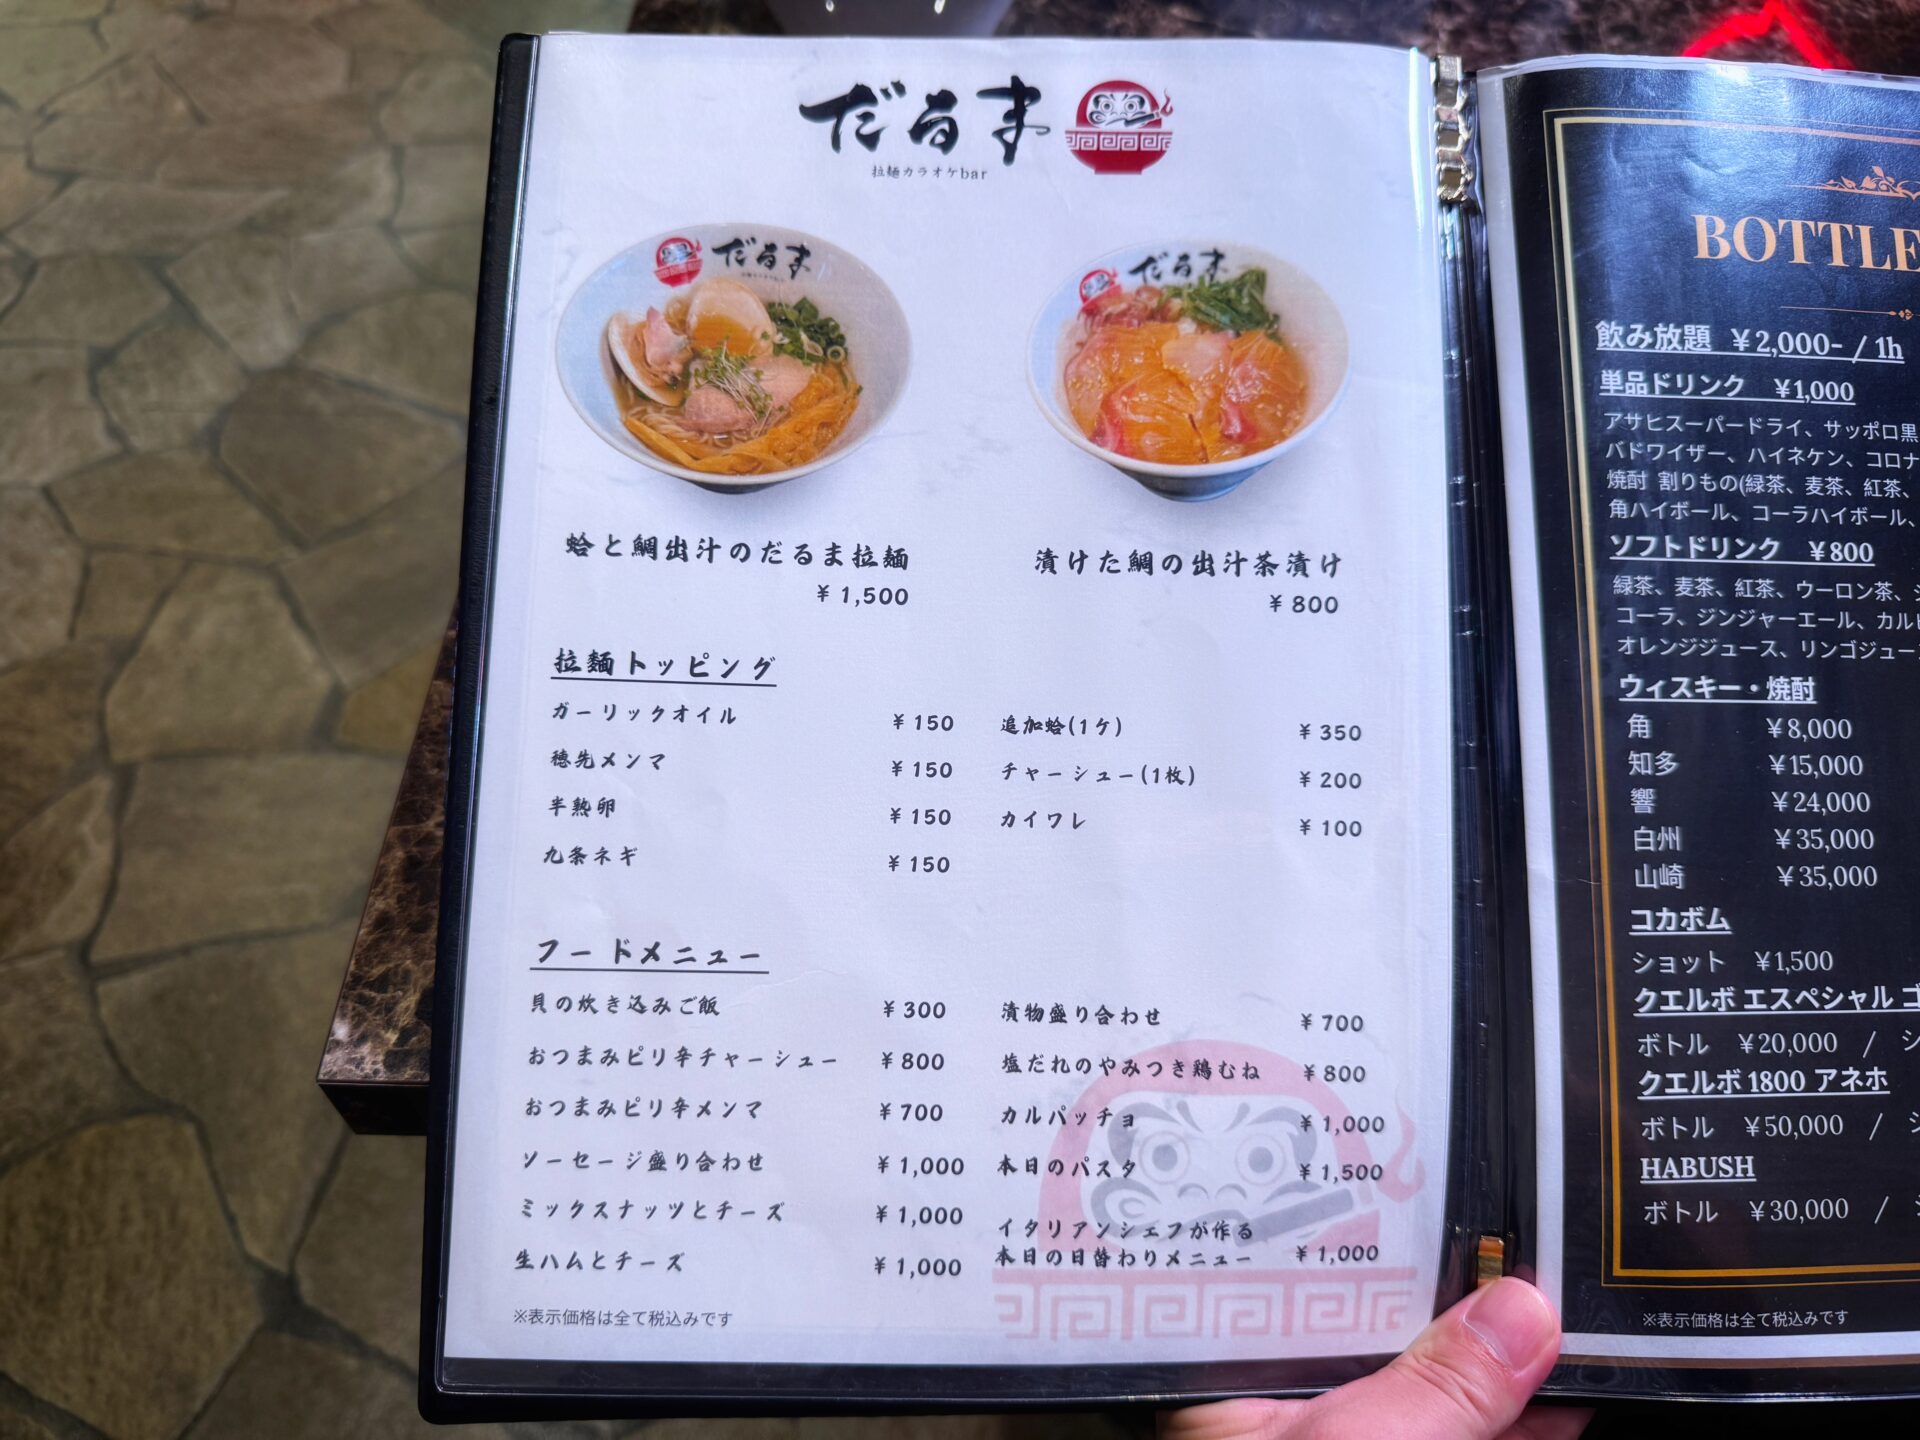 だるま
拉麺カラオケbar
だるま
だるま
蛤と鯛出汁のだるま拉麺
¥1,500
漬けた鯛の出汁茶漬け
¥800
拉麺トッピング
ガーリックオイル ¥150
穂先メンマ ¥150
半熟卵 ¥150
九条ネギ ¥150
追加蛤(1ケ) ¥350
チャーシュー(1枚) ¥200
カイワレ ¥100
フードメニュー
貝の炊き込みご飯 ¥300
おつまみピリ辛チャーシュー ¥800
おつまみピリ辛メンマ ¥700
ソーセージ盛り合わせ ¥1,000
ミックスナッツとチーズ ¥1,000
生ハムとチーズ ¥1,000
漬物盛り合わせ ¥700
塩だれのやみつき鶏むね ¥800
カルパッチョ ¥1,000
本日のパスタ ¥1,500
イタリアンシェフが作る
本日の日替わりメニュー ¥1,000
※表示価格は全て税込みです
BOTTLE
飲み放題 ¥2,000- / 1h
単品ドリンク ¥1,000
アサヒスーパードライ、サッポロ黒
バドワイザー、ハイネケン、コロナ
焼酎 割りもの(緑茶、麦茶、紅茶、
角ハイボール、コーラハイボール、
ソフトドリンク ¥800
緑茶、麦茶、紅茶、ウーロン茶、
コーラ、ジンジャーエール、カルピ
オレンジジュース、リンゴジュー
ウィスキー・焼酎
角 ¥8,000
知多 ¥15,000
響 ¥24,000
白州 ¥35,000
山崎 ¥35,000
コカボム
ショット ¥1,500
クエルボ エスペシャル ゴ
ボトル ¥20,000 / シ
クエルボ 1800 アネホ
ボトル ¥50,000 / シ
HABUSH
ボトル ¥30,000 /
※表示価格は全て税込みです